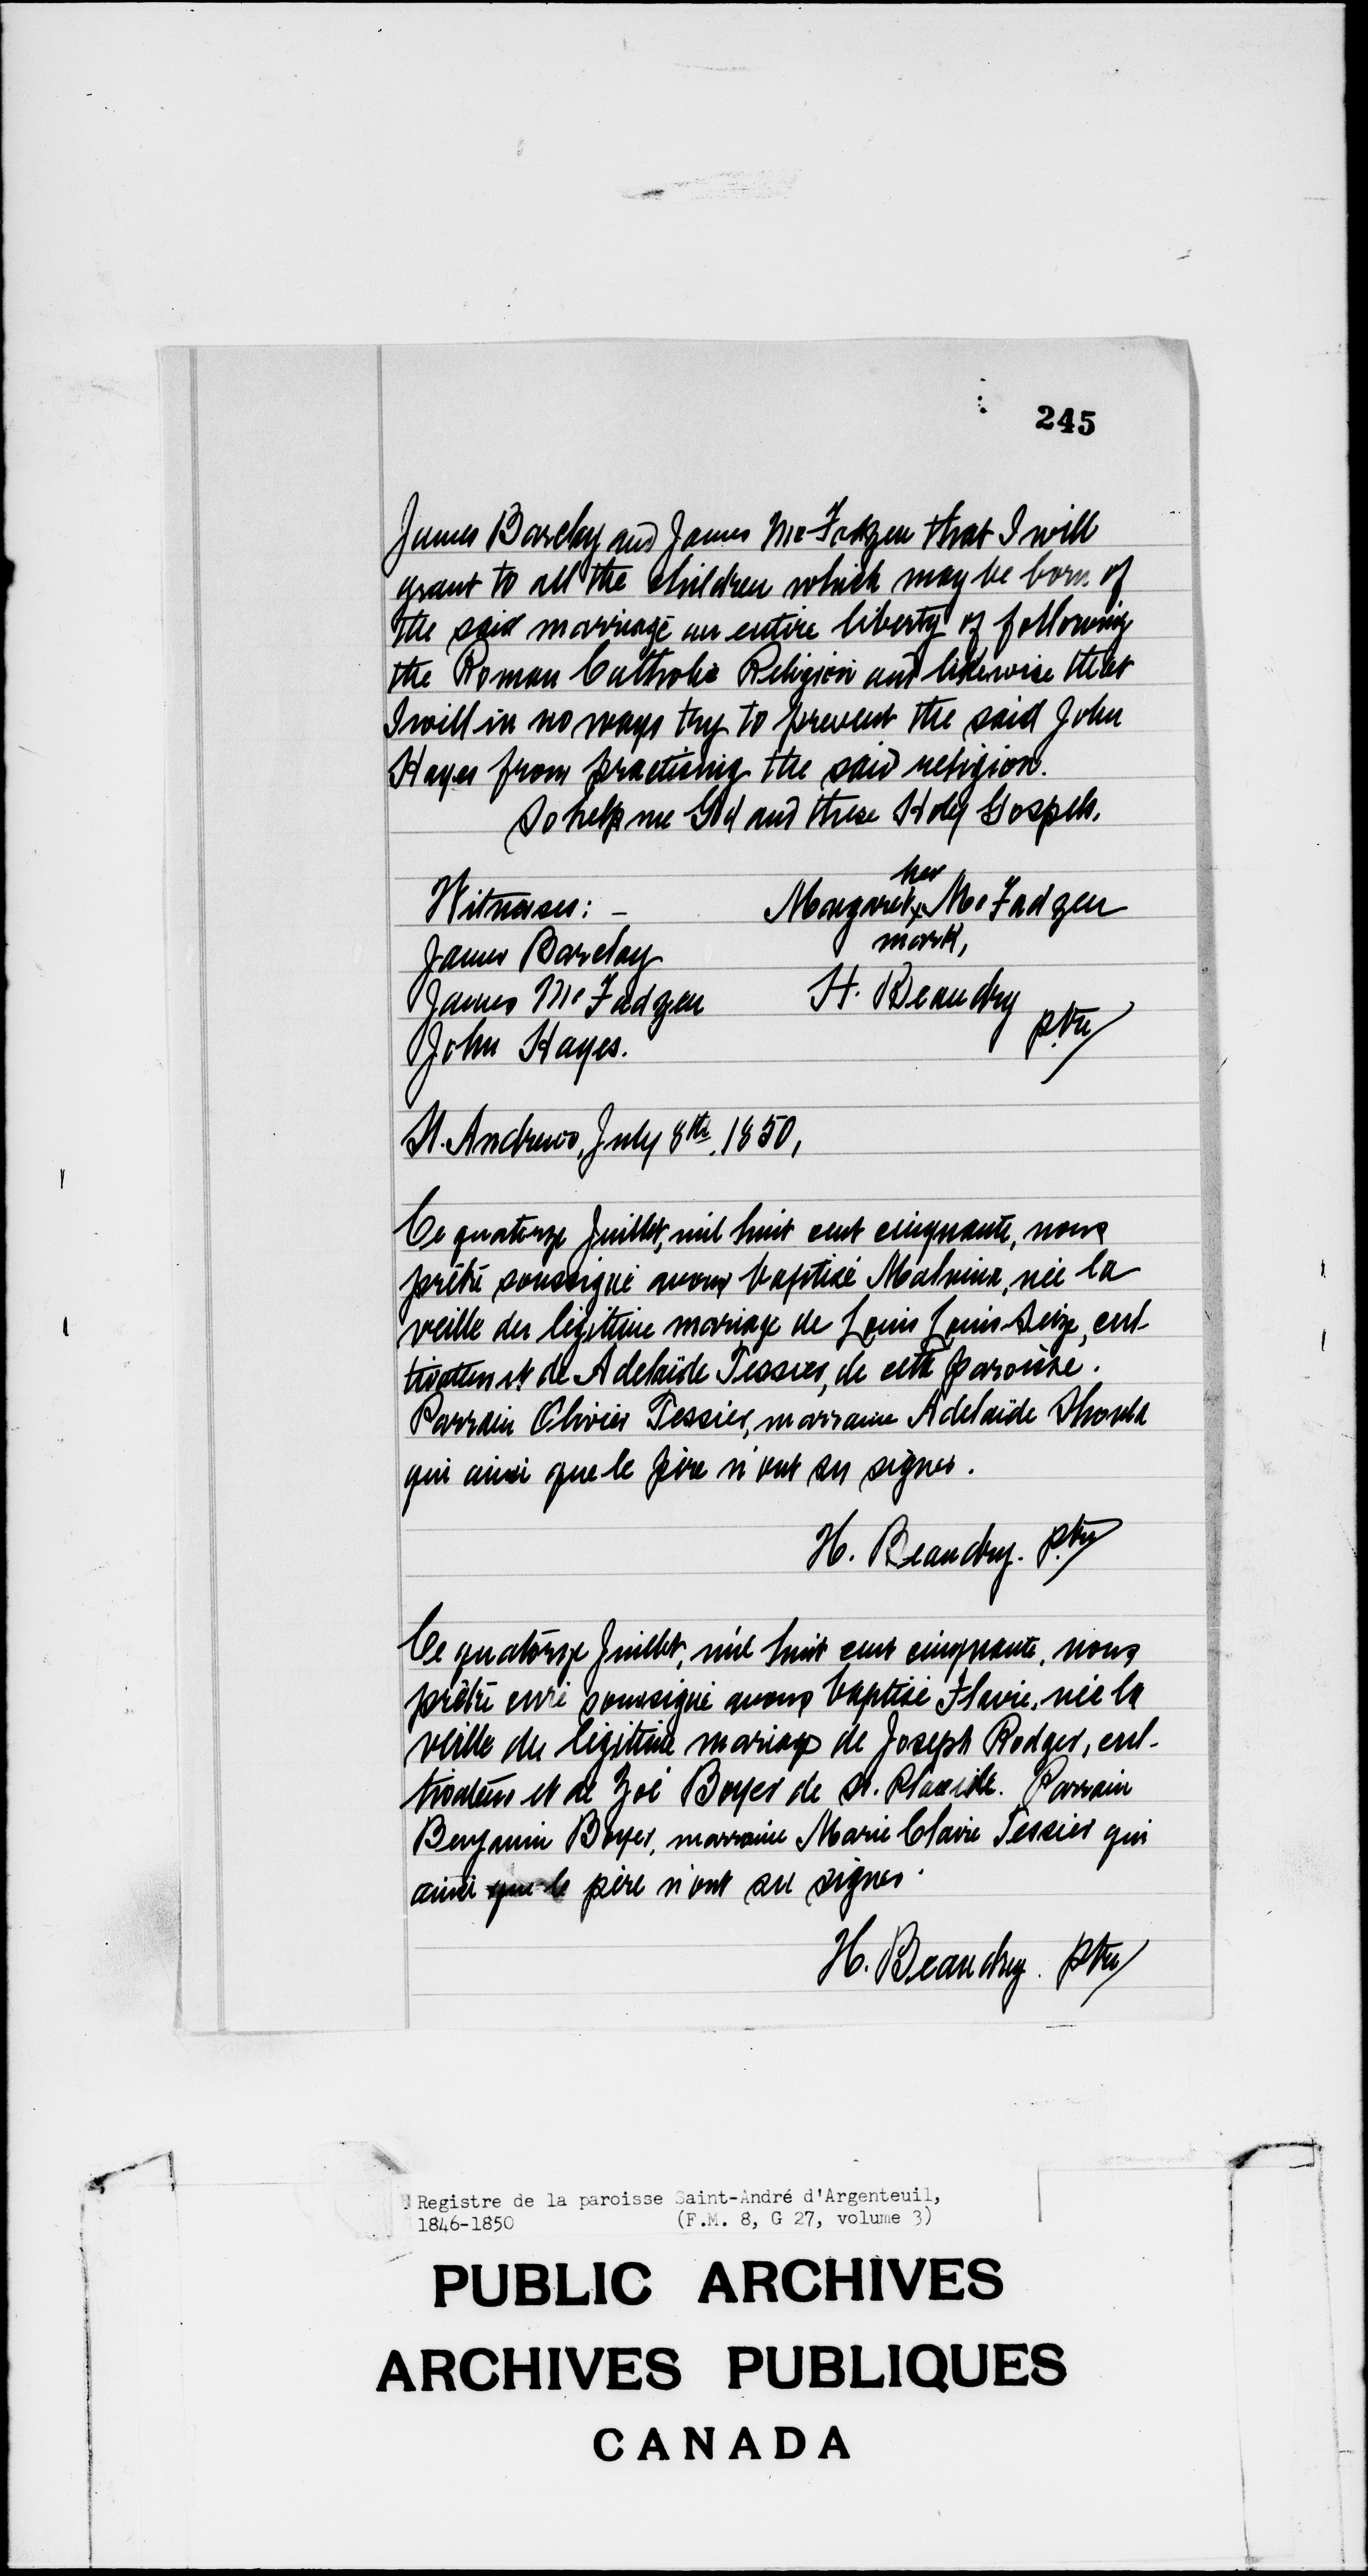 245
James Barclay and James McFadzen that I will
grant to all the children which may be born of
the said marriage an entire liberty of following
the Roman Catholic Religion and likewise that
I will in no ways try to prevent the said John
Hayes from practising the said religion.
So help me God and these Holy Gospels.
her
Witnesses: – Margaret x McFadzen
mark,
James Barclay
James McFadzen H. Beaudry
ptre
John Hayes.
St. Andrews, July 8th, 1850,
Ce quatorze Juillet, mil huit cent cinquante, nous
prêtre soussigné avons baptisé Malvina, née la
veille du légitime mariage de Louis Louis-Seize, cul-
tivateur et de Adelaïde Tessier, de cette paroisse.
Parrain Olivier Tessier, marraine Adelaïde
qui ainsi que le père n'ont su signer.
H. Beaudry. ptre
Ce quatorze Juillet, mil huit cent cinquante, nous
prêtre curé soussigné avons baptisé Flavie, née la
veille du légitime mariage de Joseph Rodger, cul-
tivateur et de Zoé Boyer de St. Placide. Parrain
Benjamin Boyer, marraine Marie Claire Tessier qui
ainsi que le père n'ont su signer.
H. Beaudry. ptre
Registre de la paroisse Saint-André d'Argenteuil,
1846-1850 (F.M. 8, G 27, volume 3)
PUBLIC ARCHIVES
ARCHIVES PUBLIQUES
CANADA